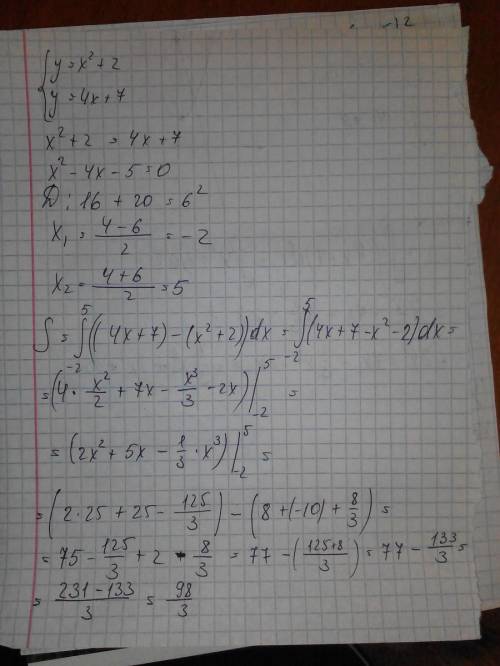 { y = x² + 2
y = 4x + 7
x² + 2 = 4x + 7
x² - 4x - 5 = 0
D: 16 + 20 = 6²
x₁ = (4 - 6)/2 = -2
x₂ = (4 + 6)/2 = 5
S = ∫₋₂⁵ ((4x + 7) - (x² + 2)) dx = ∫₋₂⁵ (4x + 7 - x² - 2) dx =
= (4 · x²/2 + 7x - x³/3 - 2x) |₋₂⁵ =
= (2x² + 5x - 1/3 · x³) |₋₂⁵ =
= (2 · 25 + 25 - 125/3) - (8 + (-10) + 8/3) =
= 75 - 125/3 + 2 - 8/3 = 77 - ((125 + 8)/3) = 77 - 133/3 =
= (231 - 133)/3 = 98/3